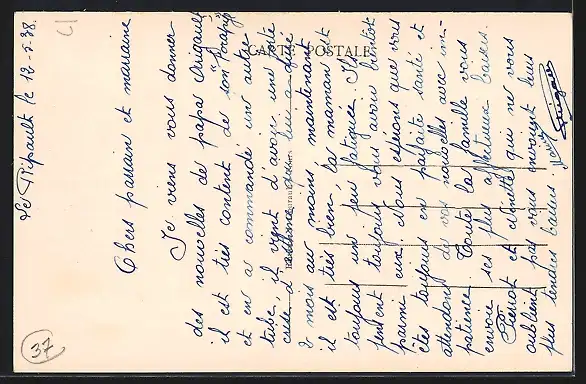 Le Ripault le 12-5-38.
CARTE POSTALE
Chers parrain et marraine
Je viens vous donner
des nouvelles de papa Origault
il est très content de son "Foraçy"
et en a commandé une autre
tube, il vient d'avoir une forte
crise d'asthme qui lui a duré
2 mois au moins maintenant
il est très bien, la maman est
toujours un peu fatiguée. Ils
pensent toujours vous avoir bientôt
parmi eux. Nous espérons que vous
êtes toujours en parfaite santé et
attendons de vos nouvelles avec im-
patience. Toute la famille vous
envoie ses plus affectueux baisers.
Pierrot et Ninette qui ne vous
oublient pas vous envoient leurs
plus tendres baisers.
37